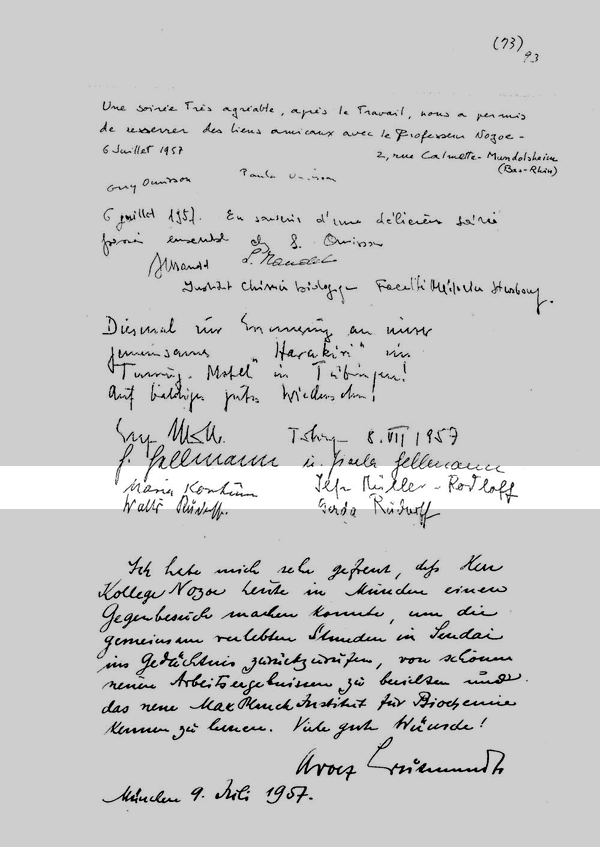 (73)
93
Une soirée très agréable, après le travail, nous a permis
de resserrer des liens amicaux avec le Professeur Nozoe -
6 Juillet 1957
2, rue Calmette - Mundolsheim
(Bas-Rhin)
Guy Ourisson Paula Ourisson
6 juillet 1957. En souvenir d'une délicieuse soirée
ensemble chez G. Ourisson
Institut Chimie biologique Faculté Médecine Strasbourg.
Diesmal zur Erinnerung an unser
gemeinsames "Harakiri" im
Touring-Motel in Tübingen!
Auf baldiges gutes Wiedersehen!
8.VII 1957
G. Hellmann u. Gisela Hellmann
Maria Müller-Rodloff
Walter Rüdorff. Gerda Rüdorff
Ich habe mich sehr gefreut, daß Herr
Kollege Nozoe heute in München einen
Gegenbesuch machen konnte, um die
gemeinsam verlebten Stunden in Sendai
ins Gedächtnis zurückzurufen, von schönen
neuen Arbeitsergebnissen zu berichten und
das neue Max Planck Institut für Biochemie
kennen zu lernen. Viele gute Wünsche!
München 9. Juli 1957.